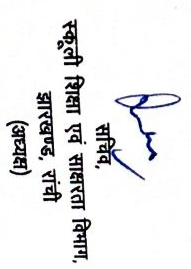 सचिव,
स्कूली शिक्षा एवं साक्षरता विभाग,
झारखण्ड, रांची
(अध्यक्ष)